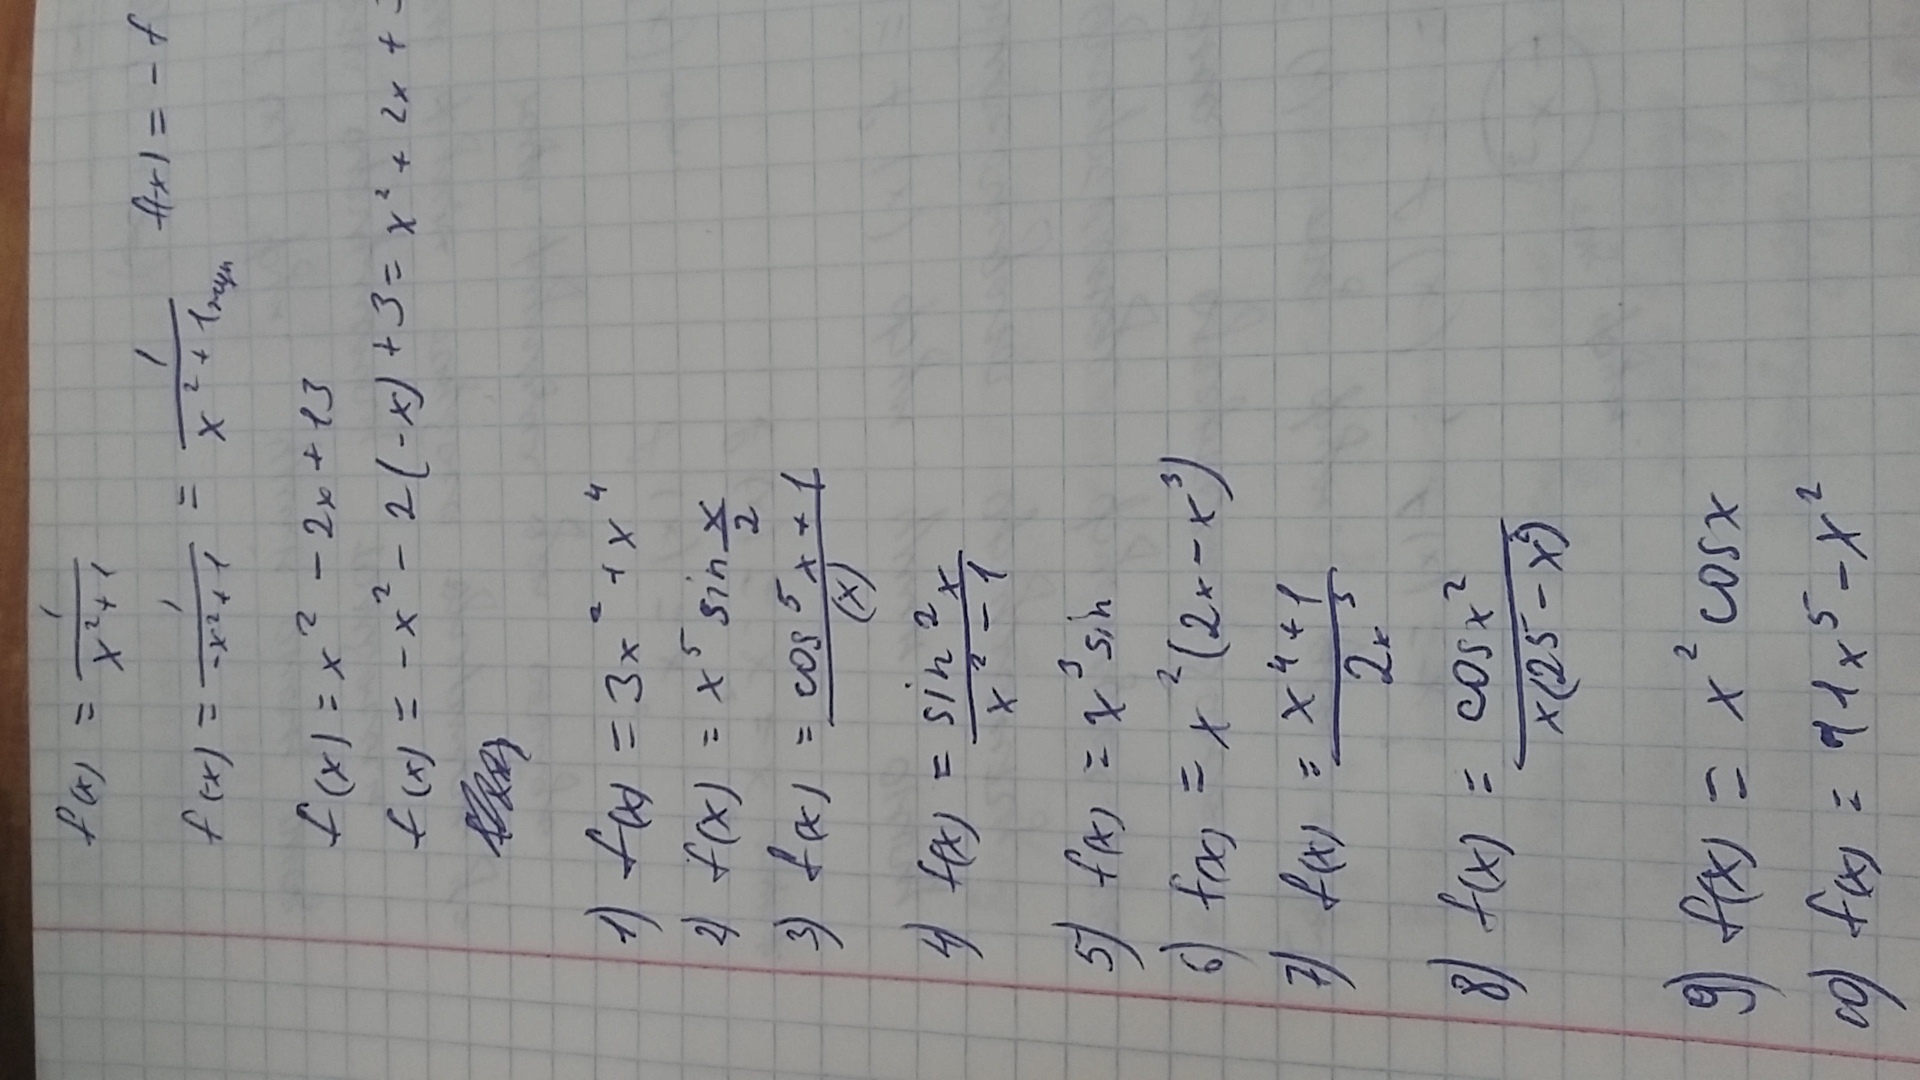 f(x) = 1/(x²+1)
f(-x) = 1/(-x²+1) = 1/(x²+1) f(x) = -f
f(x) = x² - 2x + 13
f(x) = -x² - 2(-x) + 3 = x² + 2x +
1) f(x) = 3x² + x⁴
2) f(x) = x⁵ sin x/2
3) f(x) = (cos⁵x + 1)/(x)
4) f(x) = sin²x/(x² - 1)
5) f(x) = x³ sin
6) f(x) = x²(2x - x³)
7) f(x) = (x⁴ + 1)/2x³
8) f(x) = cos x²/x(25 - x²)
9) f(x) = x² cos x
10) f(x) = 71x⁵ - x²